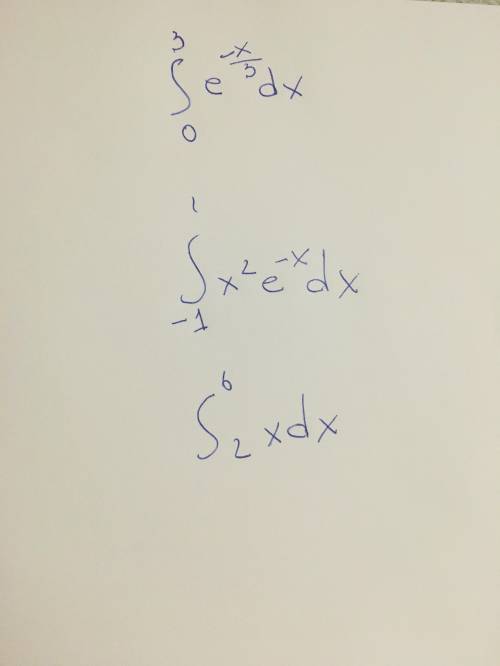 ∫₀³ e^(-x/3) dx
∫₋₁¹ x² e^(-x) dx
∫₂⁶ x dx